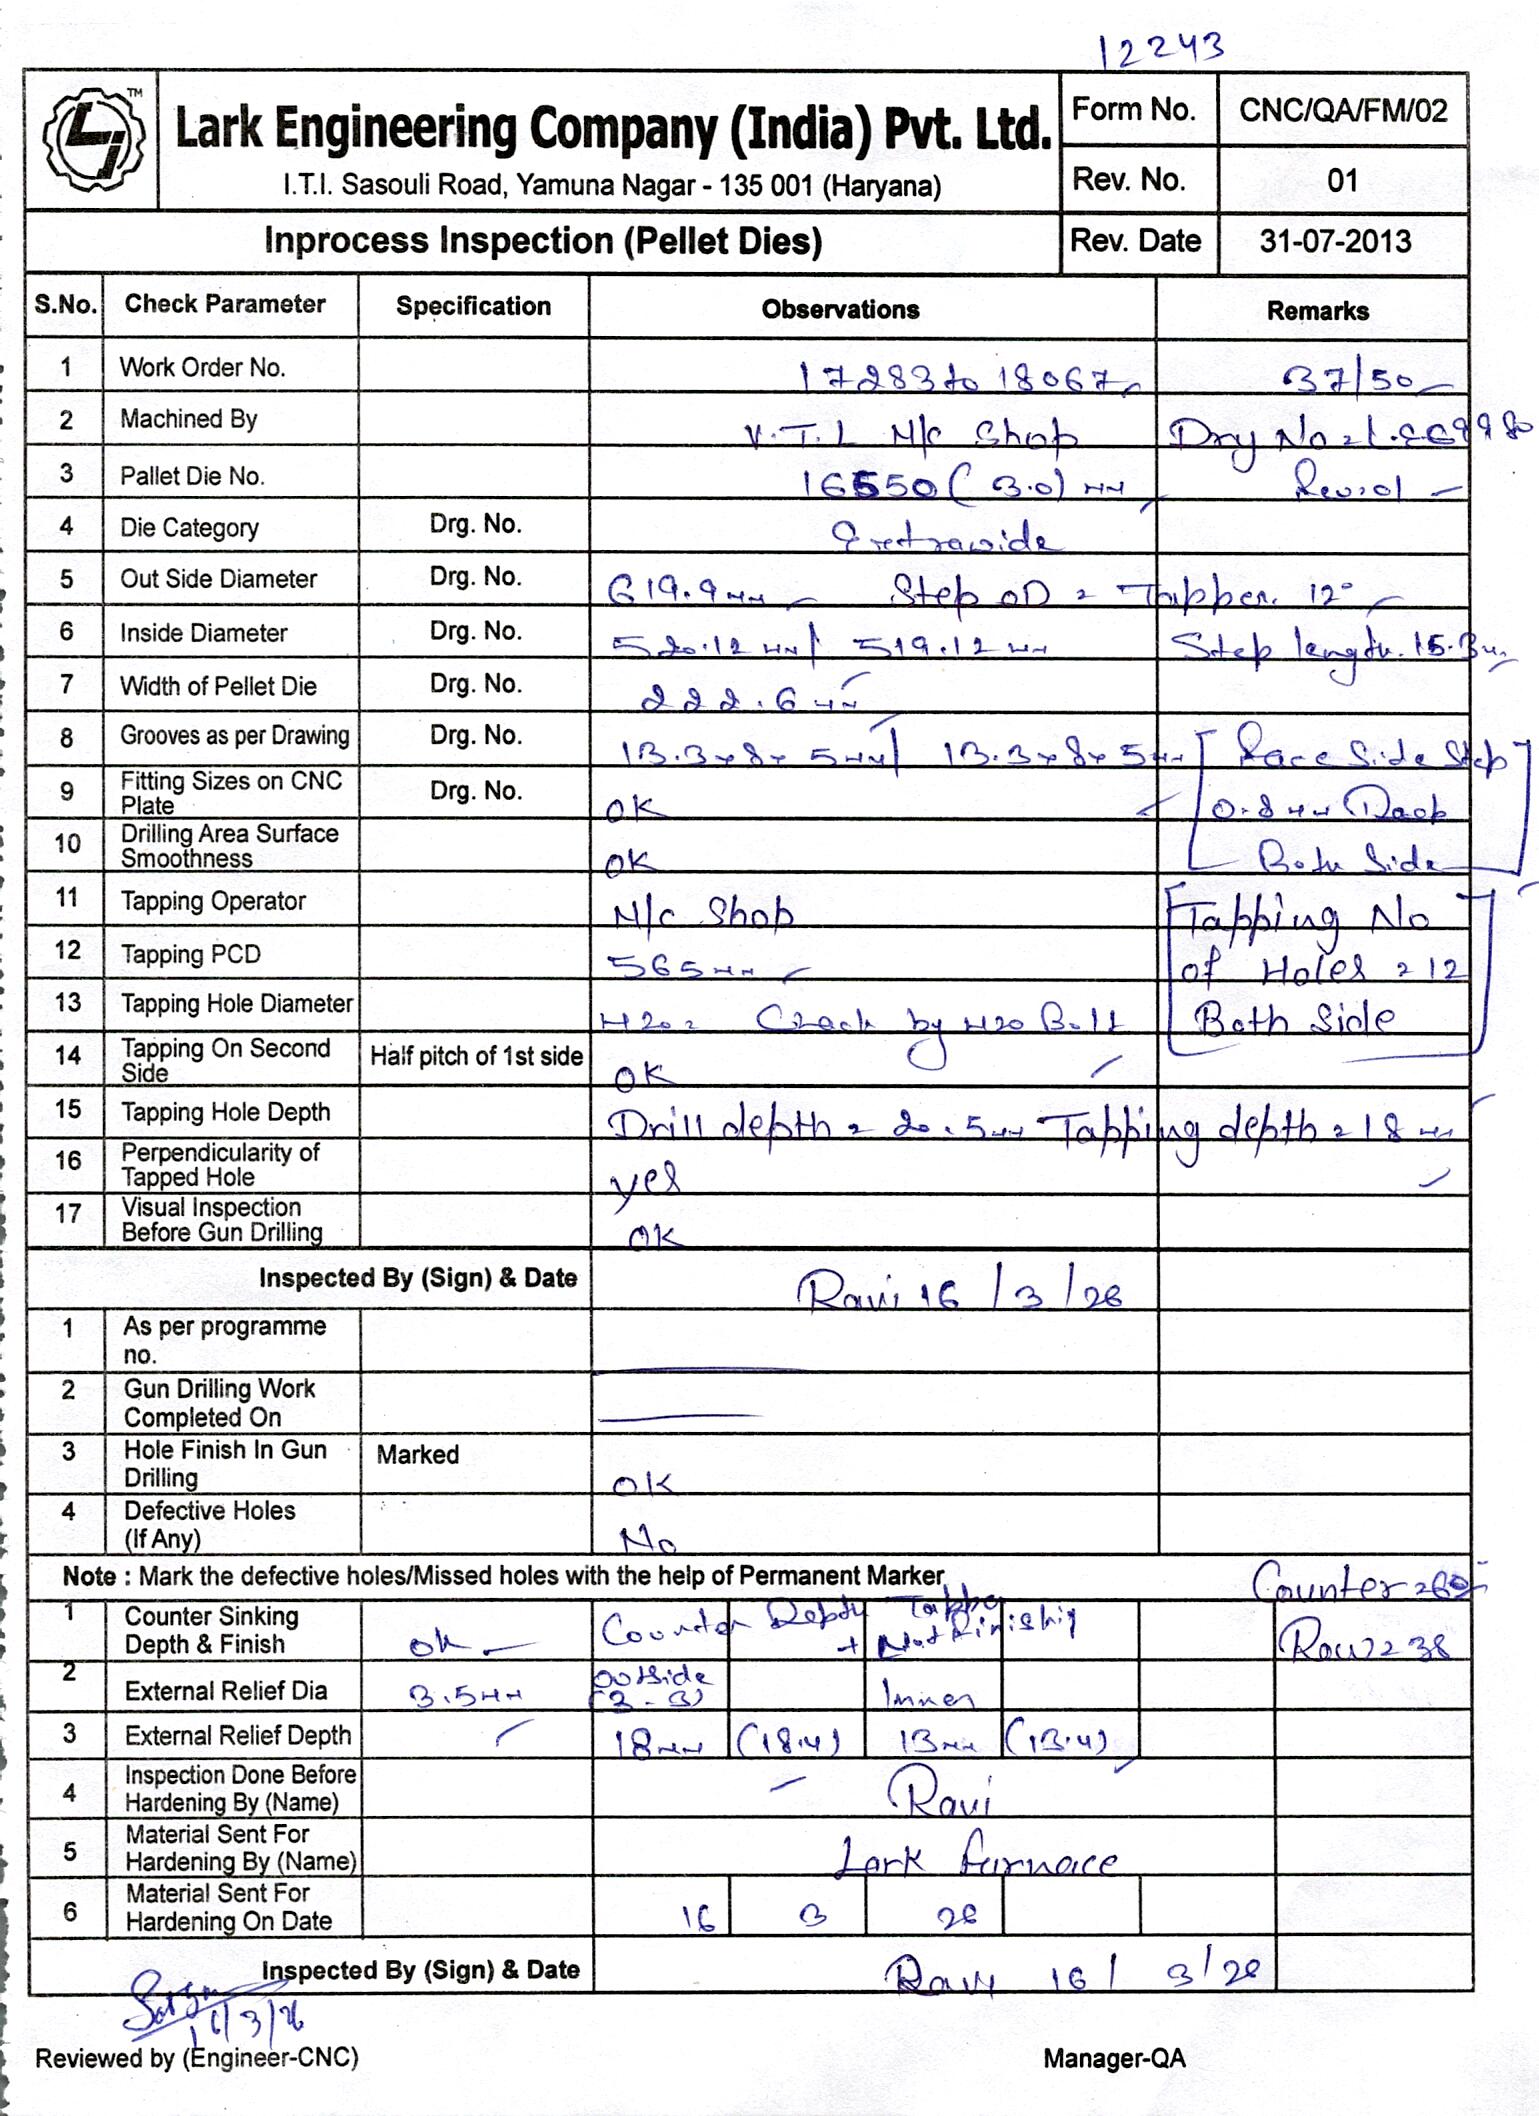 12243
TM
Lark Engineering Company (India) Pvt. Ltd.
I.T.I. Sasouli Road, Yamuna Nagar - 135 001 (Haryana)
Form No. CNC/QA/FM/02
Rev. No. 01
Inprocess Inspection (Pellet Dies) Rev. Date 31-07-2013
S.No. Check Parameter Specification Observations Remarks
1 Work Order No. 17283 to 18067 37/50
2 Machined By V.T.L M/c Shop
3 Pallet Die No. 16550 (3.0) mm
4 Die Category Drg. No. Extrawide
5 Out Side Diameter Drg. No. 619.9 mm Step OD = Tapper. 12°
6 Inside Diameter Drg. No. 520.12 mm / 519.12 mm Step length. 15.3 mm
7 Width of Pellet Die Drg. No. 222.6 mm
8 Grooves as per Drawing Drg. No. 13.3 x 8 x 5 mm / 13.3 x 8 x 5 mm [ Race Side Step ]
9 Fitting Sizes on CNC Plate Drg. No. OK 0.8 mm
10 Drilling Area Surface Smoothness OK Both Side
11 Tapping Operator M/c Shop [ Tapping No ]
12 Tapping PCD 565 mm of Holes = 12
13 Tapping Hole Diameter M20 = Check by M20 Bolt Both Side
14 Tapping On Second Side Half pitch of 1st side OK
15 Tapping Hole Depth Drill depth = 20.5 mm Tapping depth = 18 mm
16 Perpendicularity of Tapped Hole yes
17 Visual Inspection Before Gun Drilling OK
Inspected By (Sign) & Date Ravi 16/3/26
1 As per programme no.
2 Gun Drilling Work Completed On
3 Hole Finish In Gun Drilling Marked OK
4 Defective Holes (If Any) No
Note : Mark the defective holes/Missed holes with the help of Permanent Marker Counter
1 Counter Sinking Depth & Finish ok Counter Depth + Finishing Row = 38
2 External Relief Dia 3.5 mm outside (3-3) Inner
3 External Relief Depth 18 mm (18.4) 13 mm (13.4)
4 Inspection Done Before Hardening By (Name) Ravi
5 Material Sent For Hardening By (Name) Lark furnace
6 Material Sent For Hardening On Date 16 3 26
Inspected By (Sign) & Date Ravi 16/3/26
16/3/26
Reviewed by (Engineer-CNC) Manager-QA